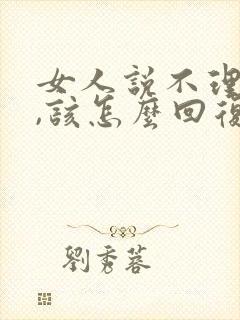 女人說不理
,該怎麼回復
劉秀蓉